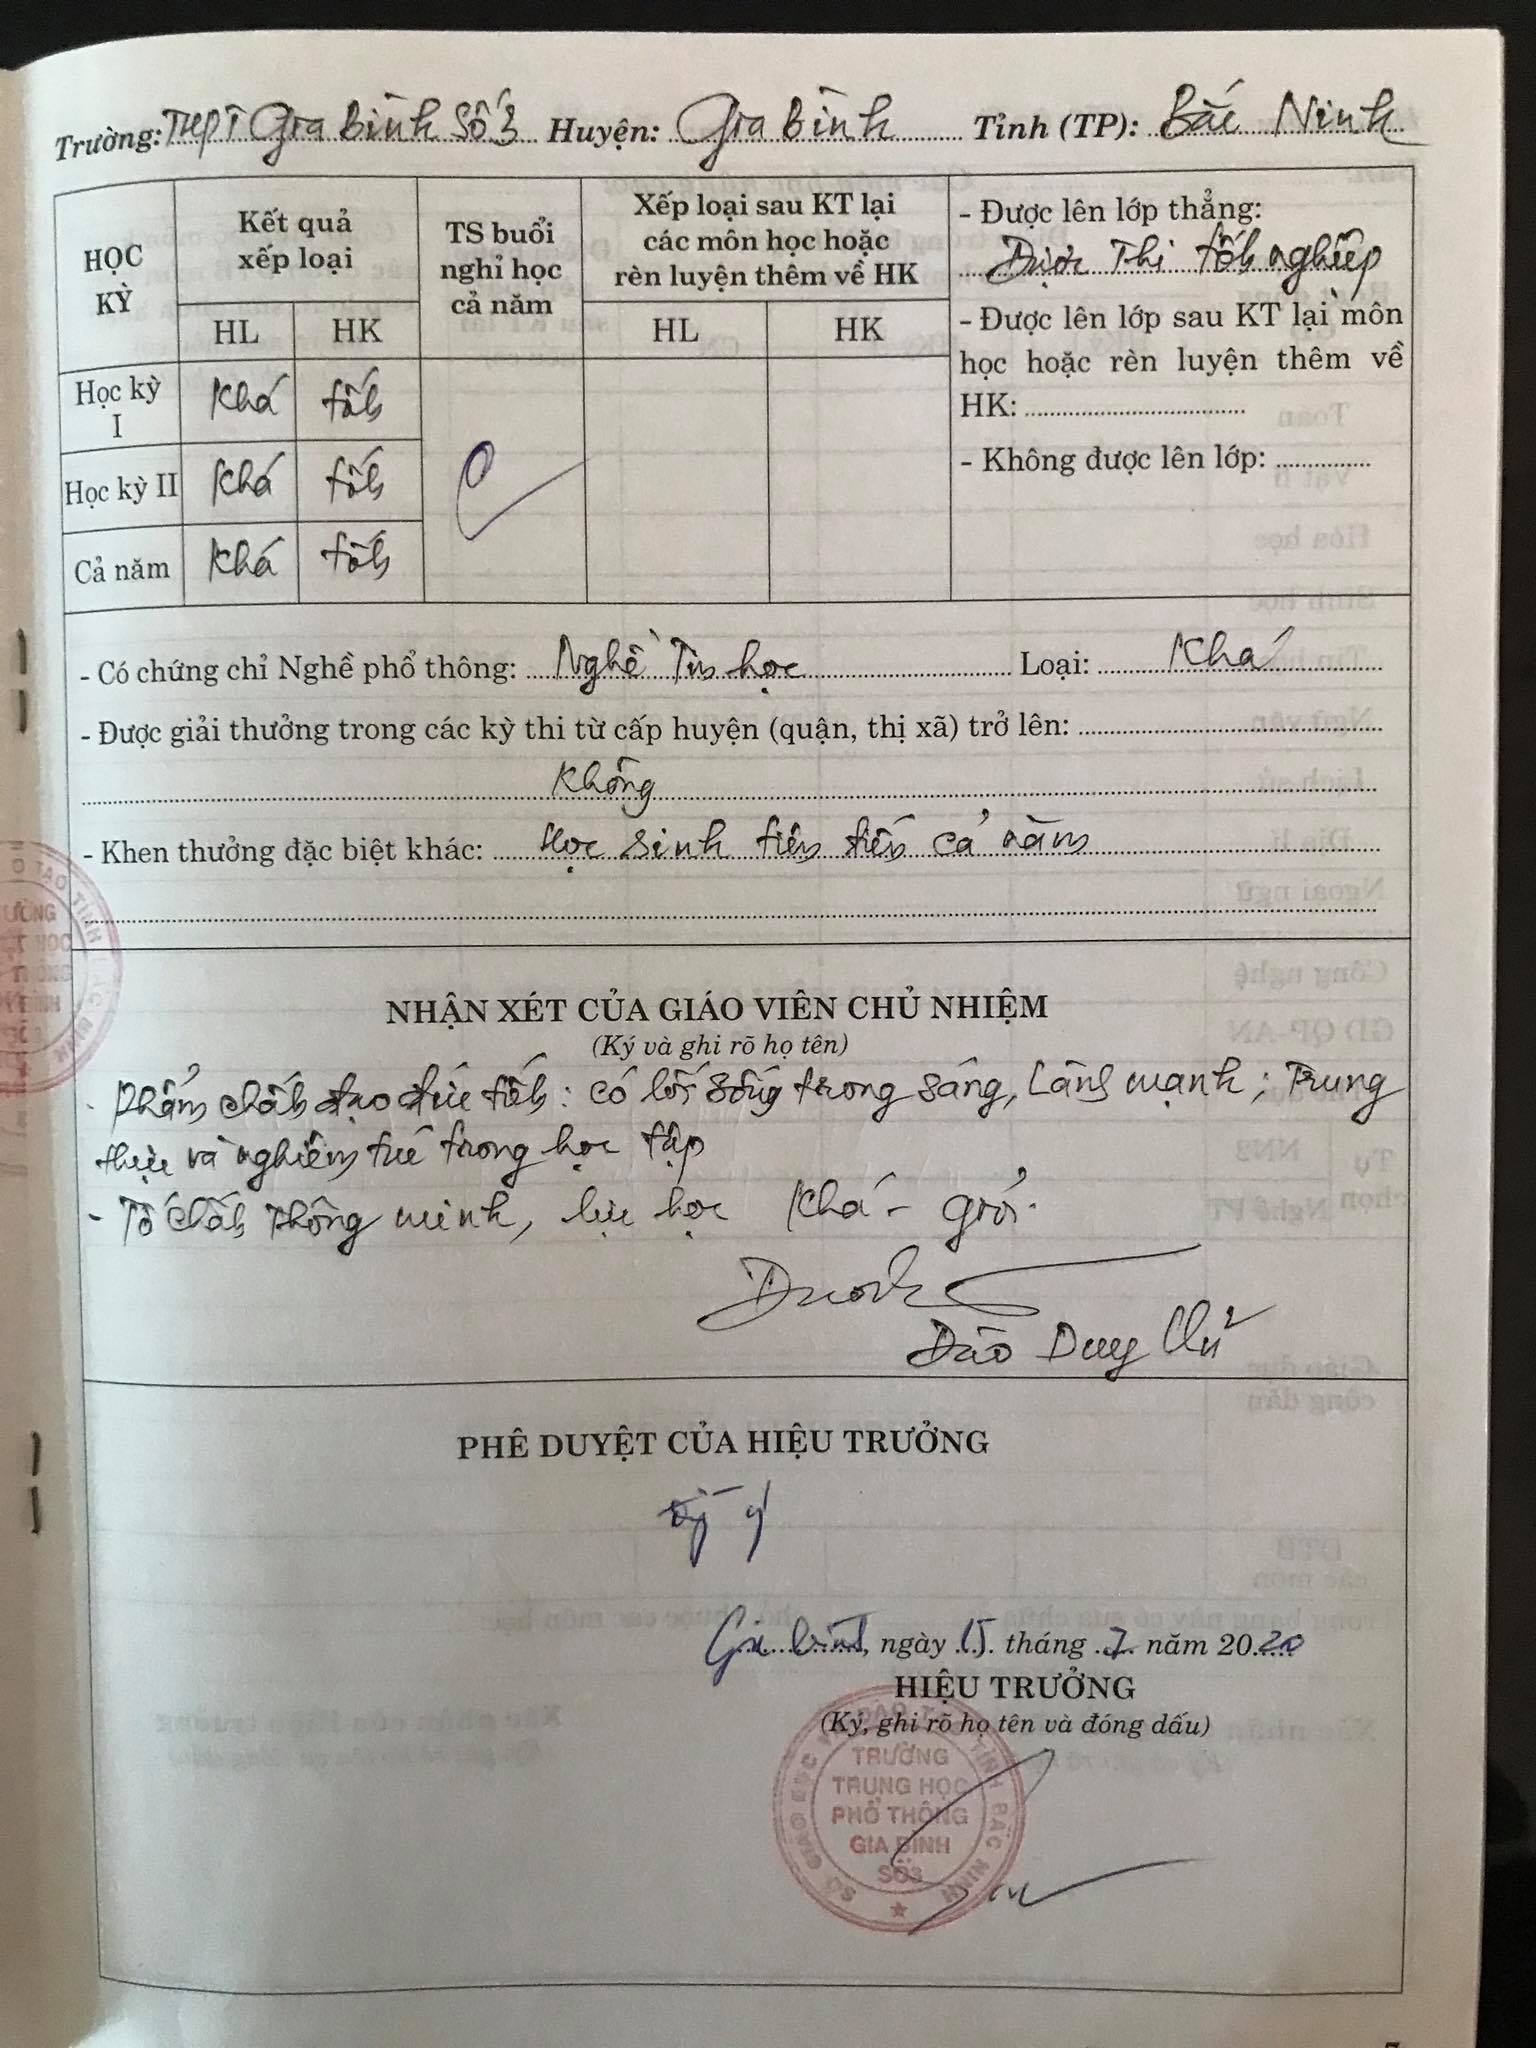 Trường: THPT Gia Bình Số 3 Huyện: Gia Bình Tỉnh (TP): Bắc Ninh
HỌC KỲ
Kết quả xếp loại
TS buổi nghỉ học cả năm
Xếp loại sau KT lại các môn học hoặc rèn luyện thêm về HK
HL HK HL HK
Học kỳ I Khá tốt
Học kỳ II Khá tốt
Cả năm Khá tốt
0
- Được lên lớp thẳng:
Được Thi tốt nghiệp
- Được lên lớp sau KT lại môn
học hoặc rèn luyện thêm về
HK:
- Không được lên lớp:
- Có chứng chỉ Nghề phổ thông: Nghề Tin học Loại: Khá
- Được giải thưởng trong các kỳ thi từ cấp huyện (quận, thị xã) trở lên:
Không
- Khen thưởng đặc biệt khác: Học sinh tiên tiến cả năm
NHẬN XÉT CỦA GIÁO VIÊN CHỦ NHIỆM
(Ký và ghi rõ họ tên)
- Phẩm chất đạo đức tốt: có lối sống trong sáng, Lành mạnh; Trung
thực và nghiêm túc trong học tập
- Tố chất thông minh, lực học Khá - giỏi.
Đào Duy Chử
PHÊ DUYỆT CỦA HIỆU TRƯỞNG
Gia Bình, ngày 15 tháng 7 năm 2020
HIỆU TRƯỞNG
(Ký, ghi rõ họ tên và đóng dấu)
SỞ GIÁO DỤC VÀ ĐÀO TẠO TỈNH BẮC NINH
TRƯỜNG
TRUNG HỌC
PHỔ THÔNG
GIA BÌNH
SỐ 3